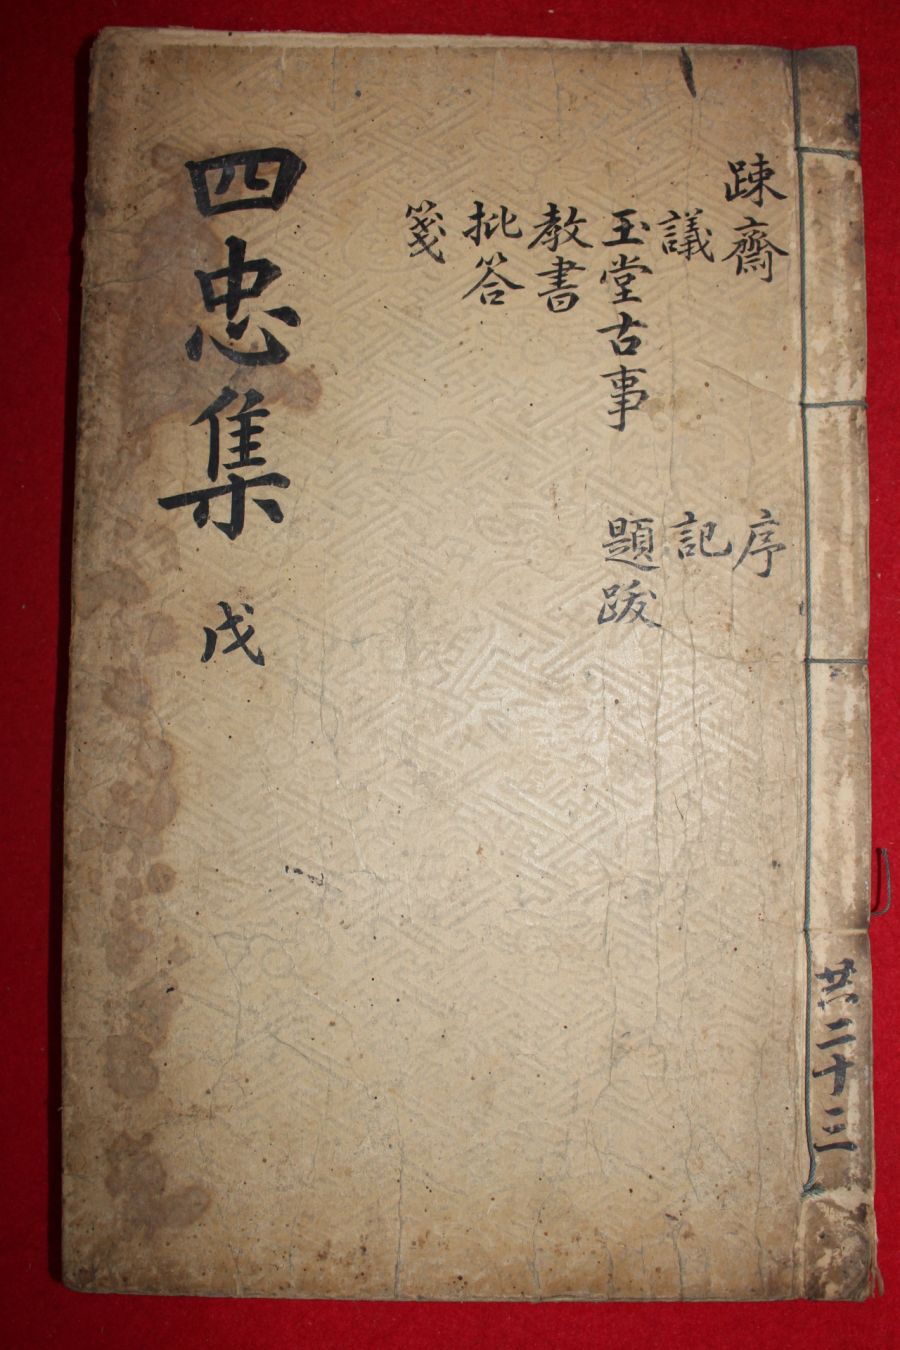 四忠集 戊
踈齋
議
玉堂古事
教書
批答
箋
序
記
題跋
共二十三